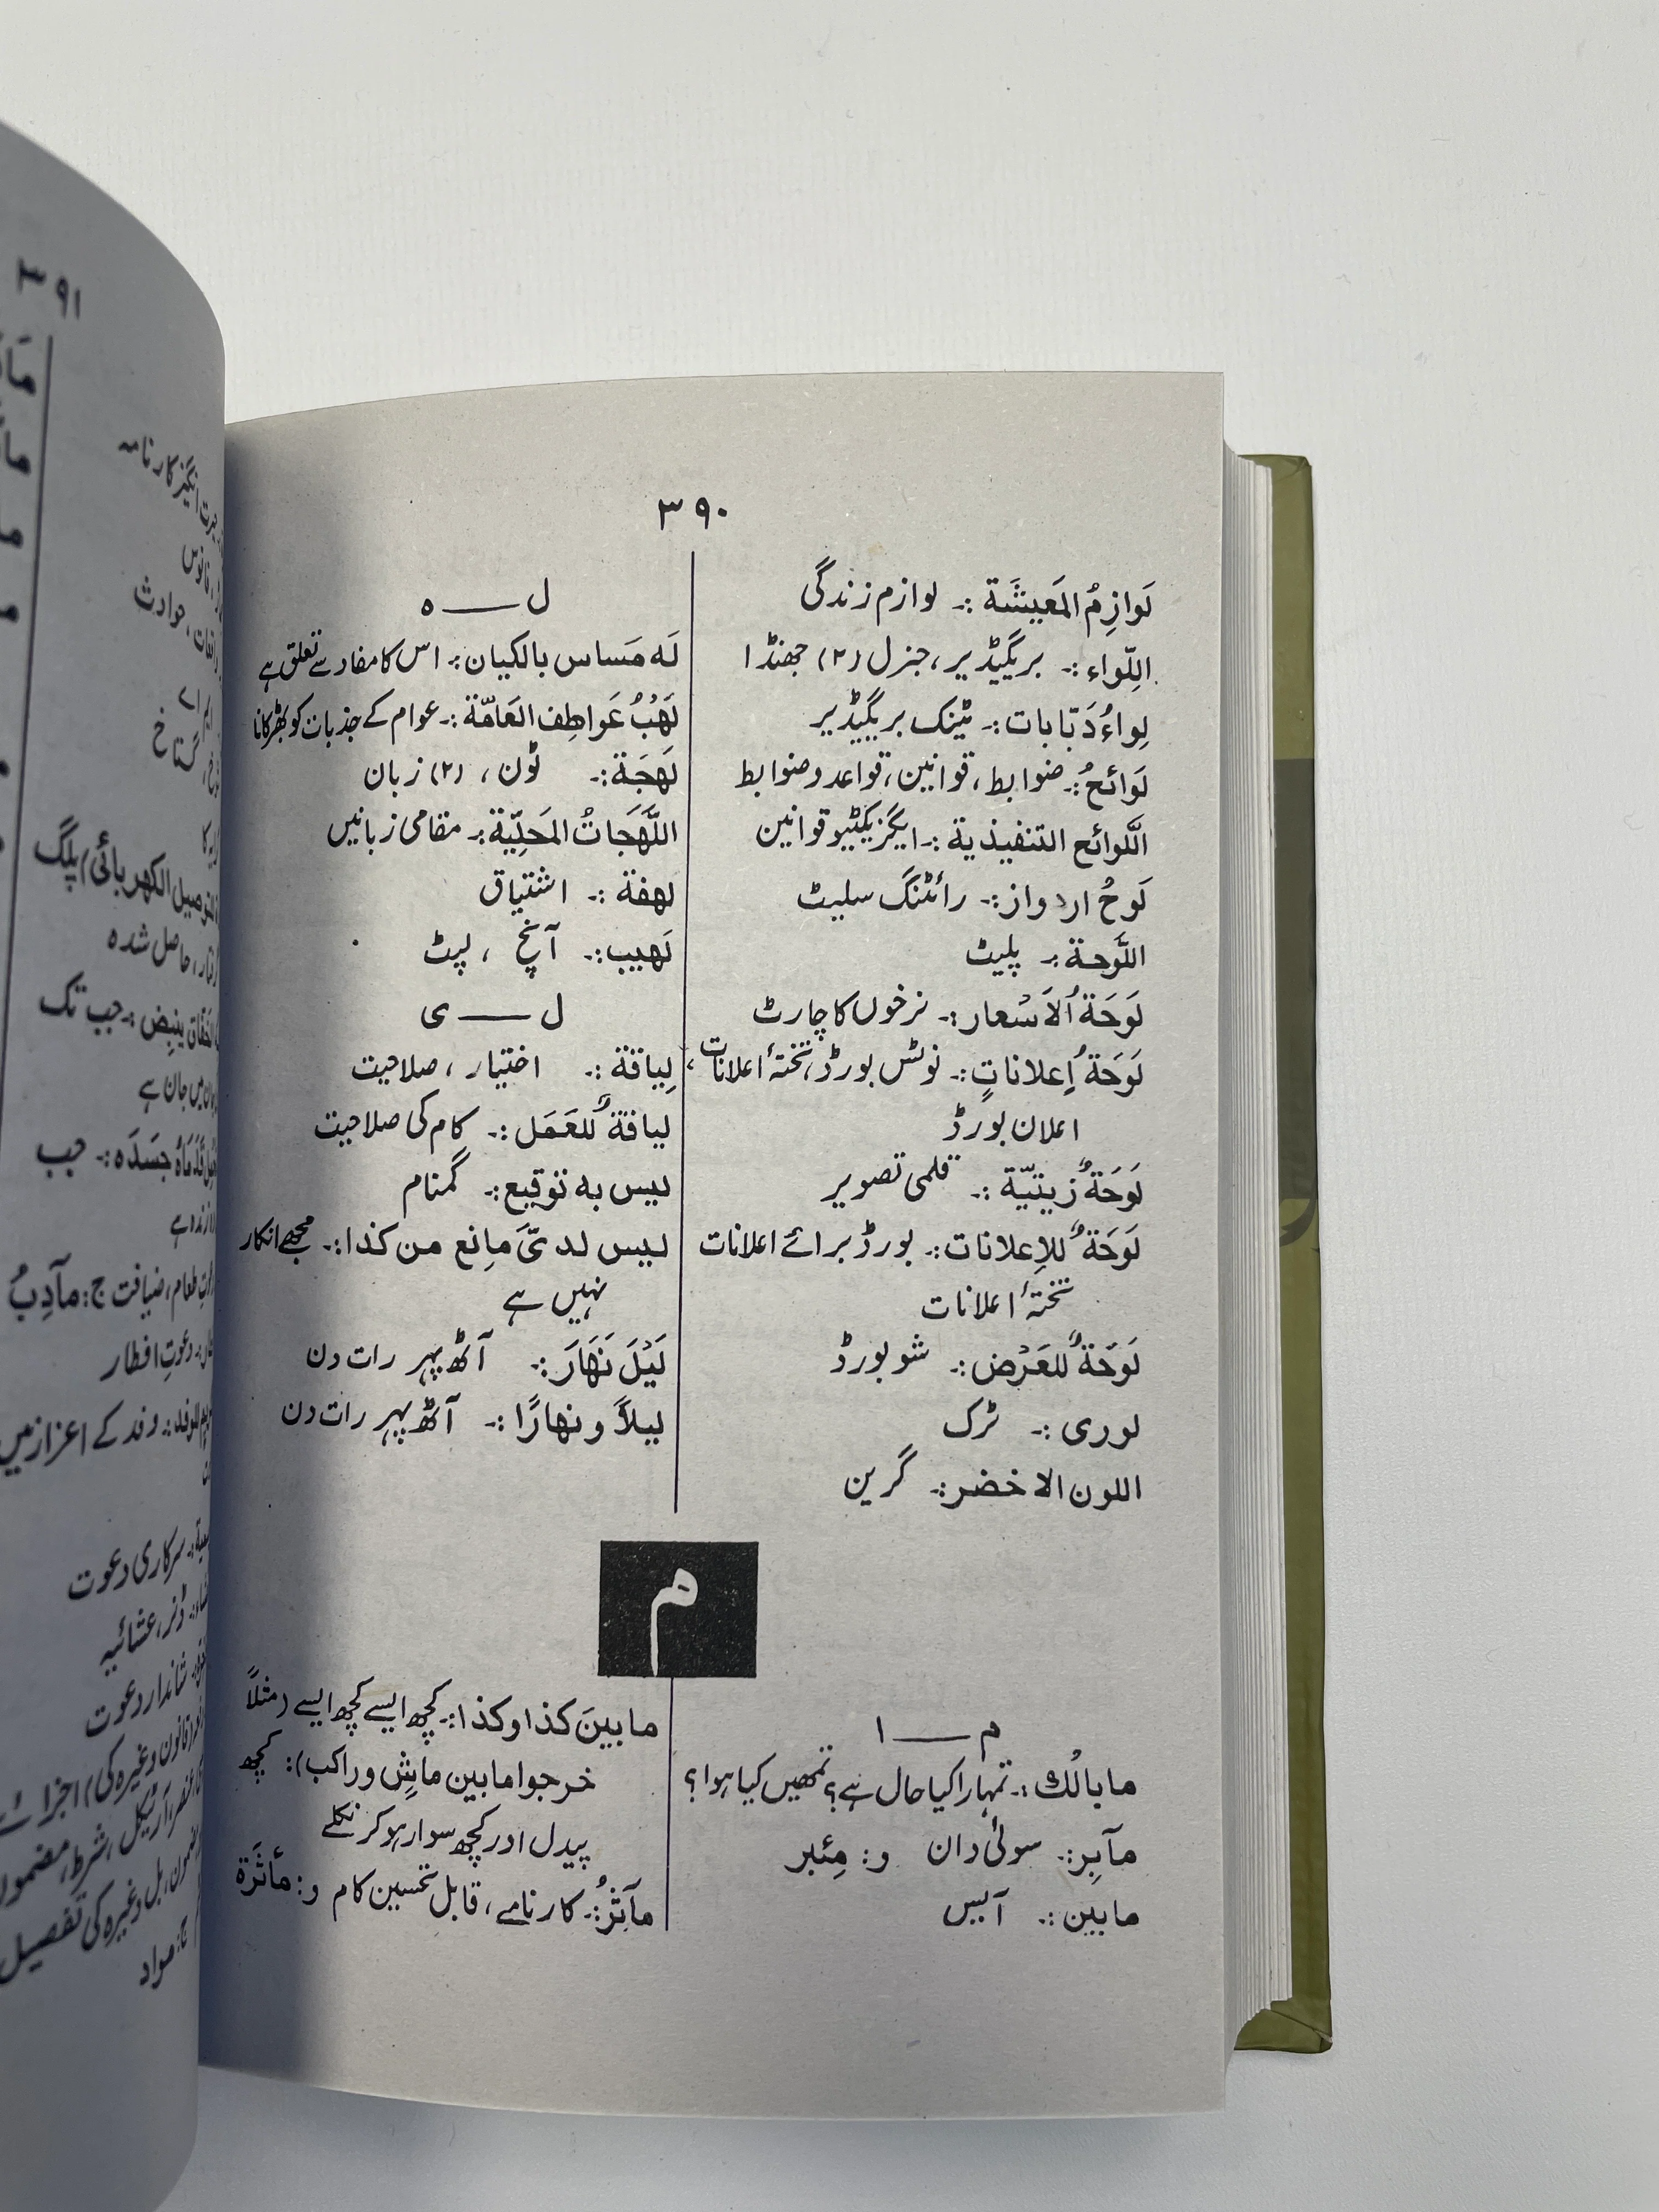 ۳۹۰
لَوازِمُ المَعِيشَة :۔ لوازم زندگی
اللِّواء :۔ بریگیڈیر، جنرل (۲) جھنڈا
لِواءُ دَبّابات :۔ ٹینک بریگیڈیر
لَوائحُ :۔ ضوابط، قوانین، قواعد وضوابط
اللَّوائح التنفيذية :۔ ایگزیکٹیو قوانین
لَوحُ اردواز :۔ رائٹنگ سلیٹ
اللَّوحة :۔ پلیٹ
لَوحَةُ الاَسْعار :۔ نرخوں کا چارٹ
لَوحَةُ إعلاناتٍ :۔ نوٹس بورڈ، تختۂ اعلانات،
اعلان بورڈ
لَوحَةٌ زيتيّة :۔ قلمی تصویر
لَوحَةٌ للاِعلانات :۔ بورڈ برائے اعلانات
تختۂ اعلانات
لَوحَةٌ للعَرْض :۔ شو بورڈ
لوری :۔ ٹرک
اللون الاخضر :۔ گرین
ل ـــــ ہ
لَه مَساس بالكيان :۔ اس کا مفاد سے تعلق ہے
لَهْبُ عَواطِف العَامّة :۔ عوام کے جذبات کو بھڑکانا
لَهجَة :۔ ٹون، (۲) زبان
اللَّهَجَاتُ المَحلِيّة :۔ مقامی زبانیں
لهفة :۔ اشتیاق
لَهيب :۔ آنچ، لپٹ
ل ـــــ ی
لِياقة :۔ اختیار، صلاحیت
لياقةٌ للعَمَل :۔ کام کی صلاحیت
ليس به توقيع :۔ گمنام
ليس لدیَّ مانع من كذا :۔ مجھے انکار
نہیں ہے
لَيْلَ نَهَارَ :۔ آٹھ پہر رات دن
ليلاً و نهارًا :۔ آٹھ پہر رات دن
م
م ـــــ ا
ما بالُك :۔ تمہارا کیا حال ہے؟ تمھیں کیا ہوا؟
مآبِر :۔ سوئی دان و: مِئبر
مابين :۔ آپس
ما بينَ كذا وكذا :۔ کچھ ایسے کچھ ایسے (مثلاً
خرجوا مابين ماشٍ وراكب): کچھ
پیدل اور کچھ سوار ہو کر نکلے
مآثِرُ :۔ کارنامے، قابل تحسین کام و: مأثَرة
۳۹۱
حاصل شدہ
جب تک
جَسَدَه :۔ جب
طعام، ضیافت ج: مآدِبُ
دعوتِ افطار
وفد کے اعزاز میں
سرکاری دعوت
ڈنر، عشائیہ
شاندار دعوت